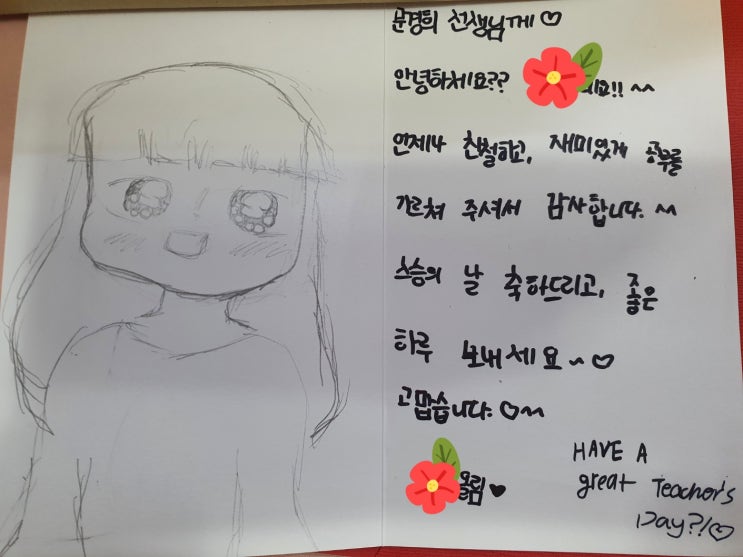 문경희 선생님께♡
안녕하세요?? 에요!! ^^
언제나 친절하고, 재미있게 공부를
가르쳐 주셔서 감사합니다. ^^
스승의 날 축하드리고, 좋은
하루 보내세요~♡
고맙습니다. ♡^^
올림♥
HAVE A
great Teacher's
Day?!♡